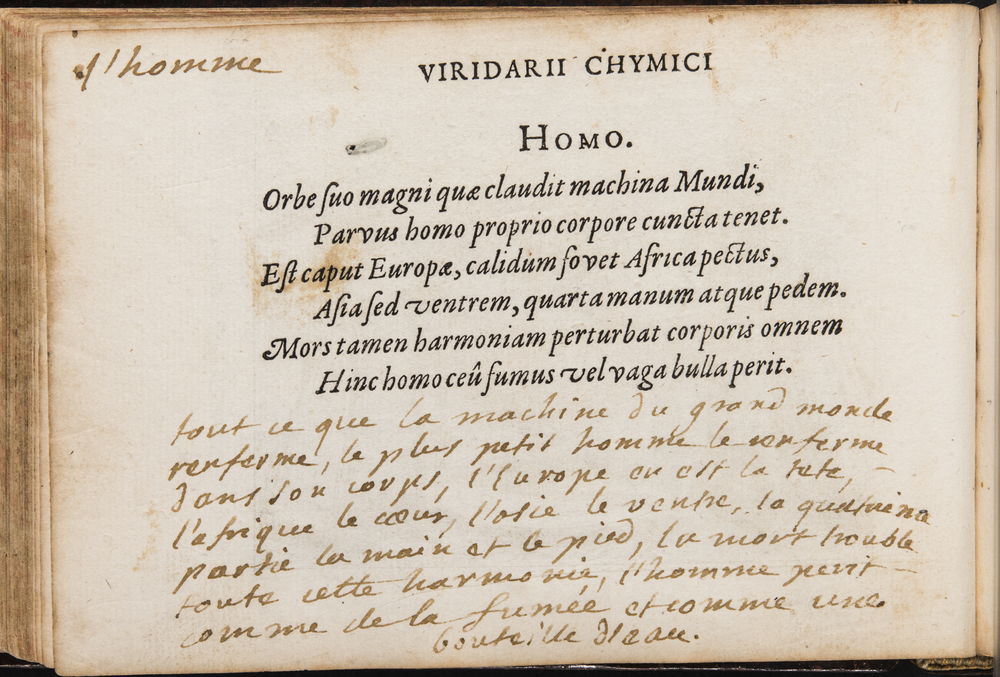 l'homme
VIRIDARII CHYMICI
HOMO.
Orbe ſuo magni quæ claudit machina Mundi,
Parvus homo proprio corpore cuncta tenet.
Eſt caput Europæ, calidum fovet Africa pectus,
Aſia ſed ventrem, quarta manum atque pedem.
Mors tamen harmoniam perturbat corporis omnem
Hinc homo ceû fumus vel vaga bulla perit.
tout ce que la machine du grand monde
renferme, le plus petit homme le renferme
dans son corps, l'Europe en est la tete,
l'afrique le cœur, l'asie le ventre, la quatrieme
partie la main et le pied, la mort trouble
toute cette harmonie, l'homme perit
comme de la fumée et comme une
bouteille d'eau.